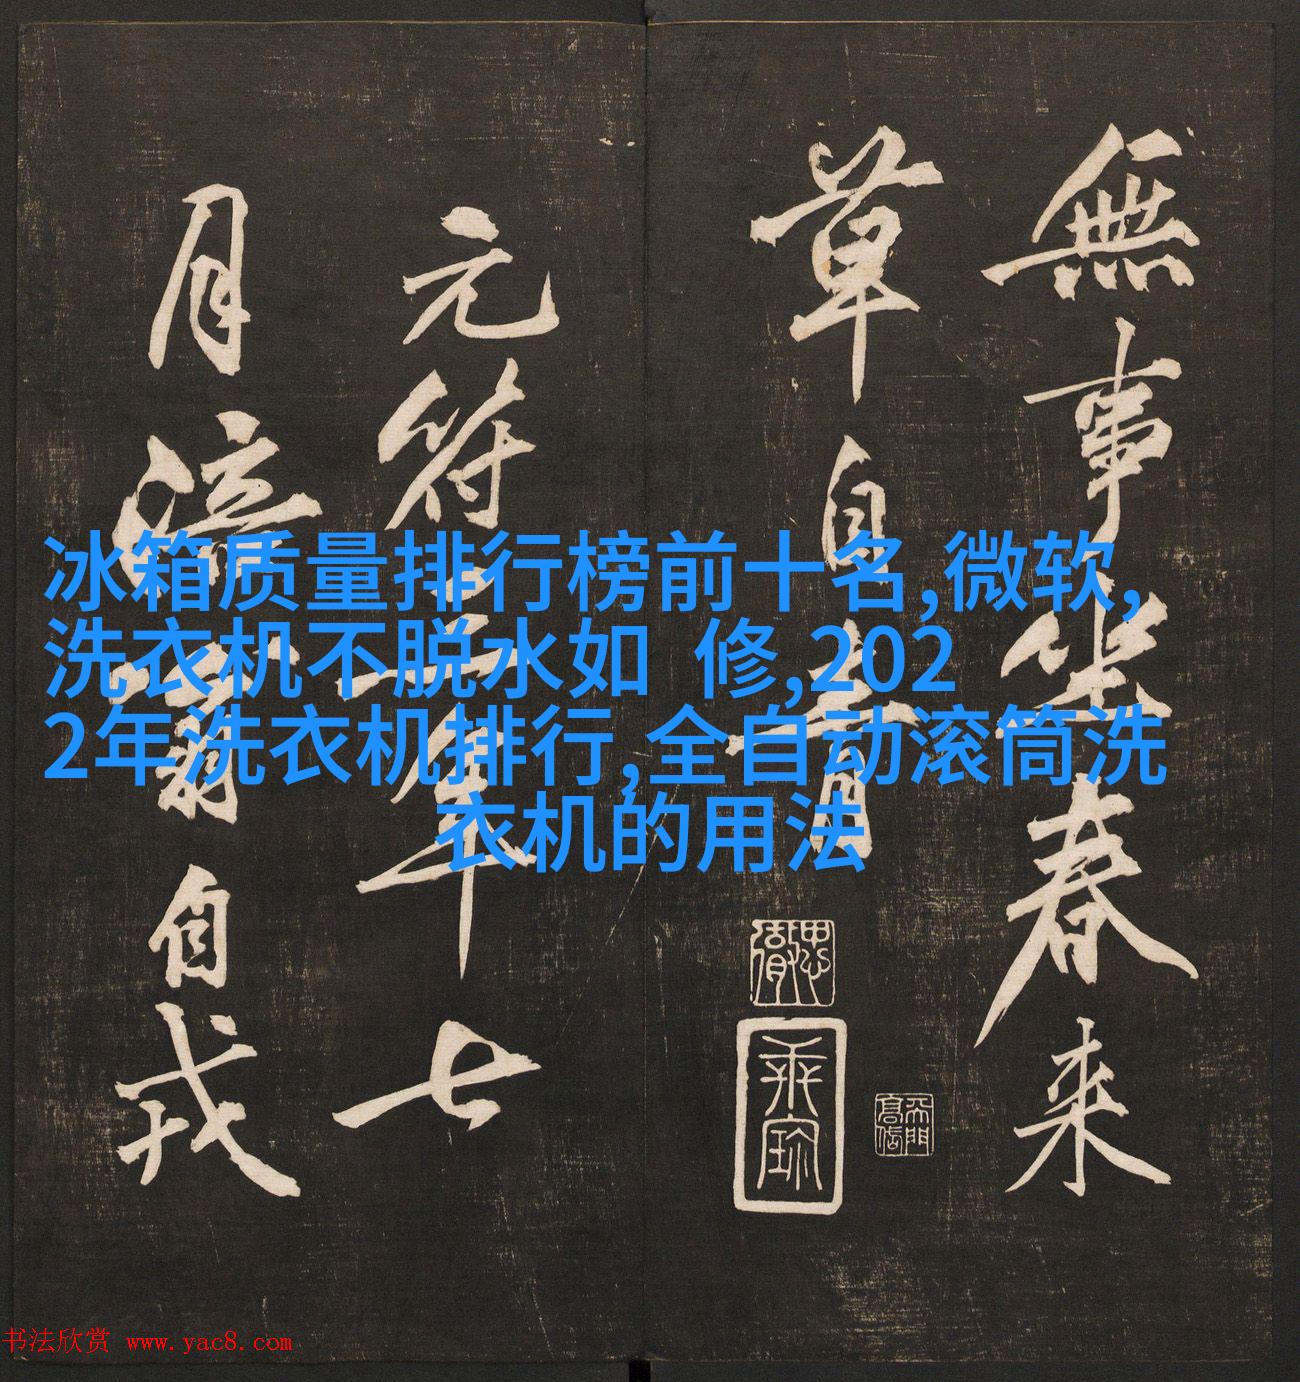 無事坐春来
草自青
元符三年七
月涪翁自戎
冰箱质量排行榜前十名,微软,
洗衣机不脱水如 修,202
2年洗衣机排行,全自动滚筒洗
衣机的用法
书法欣赏 www.yac8.com